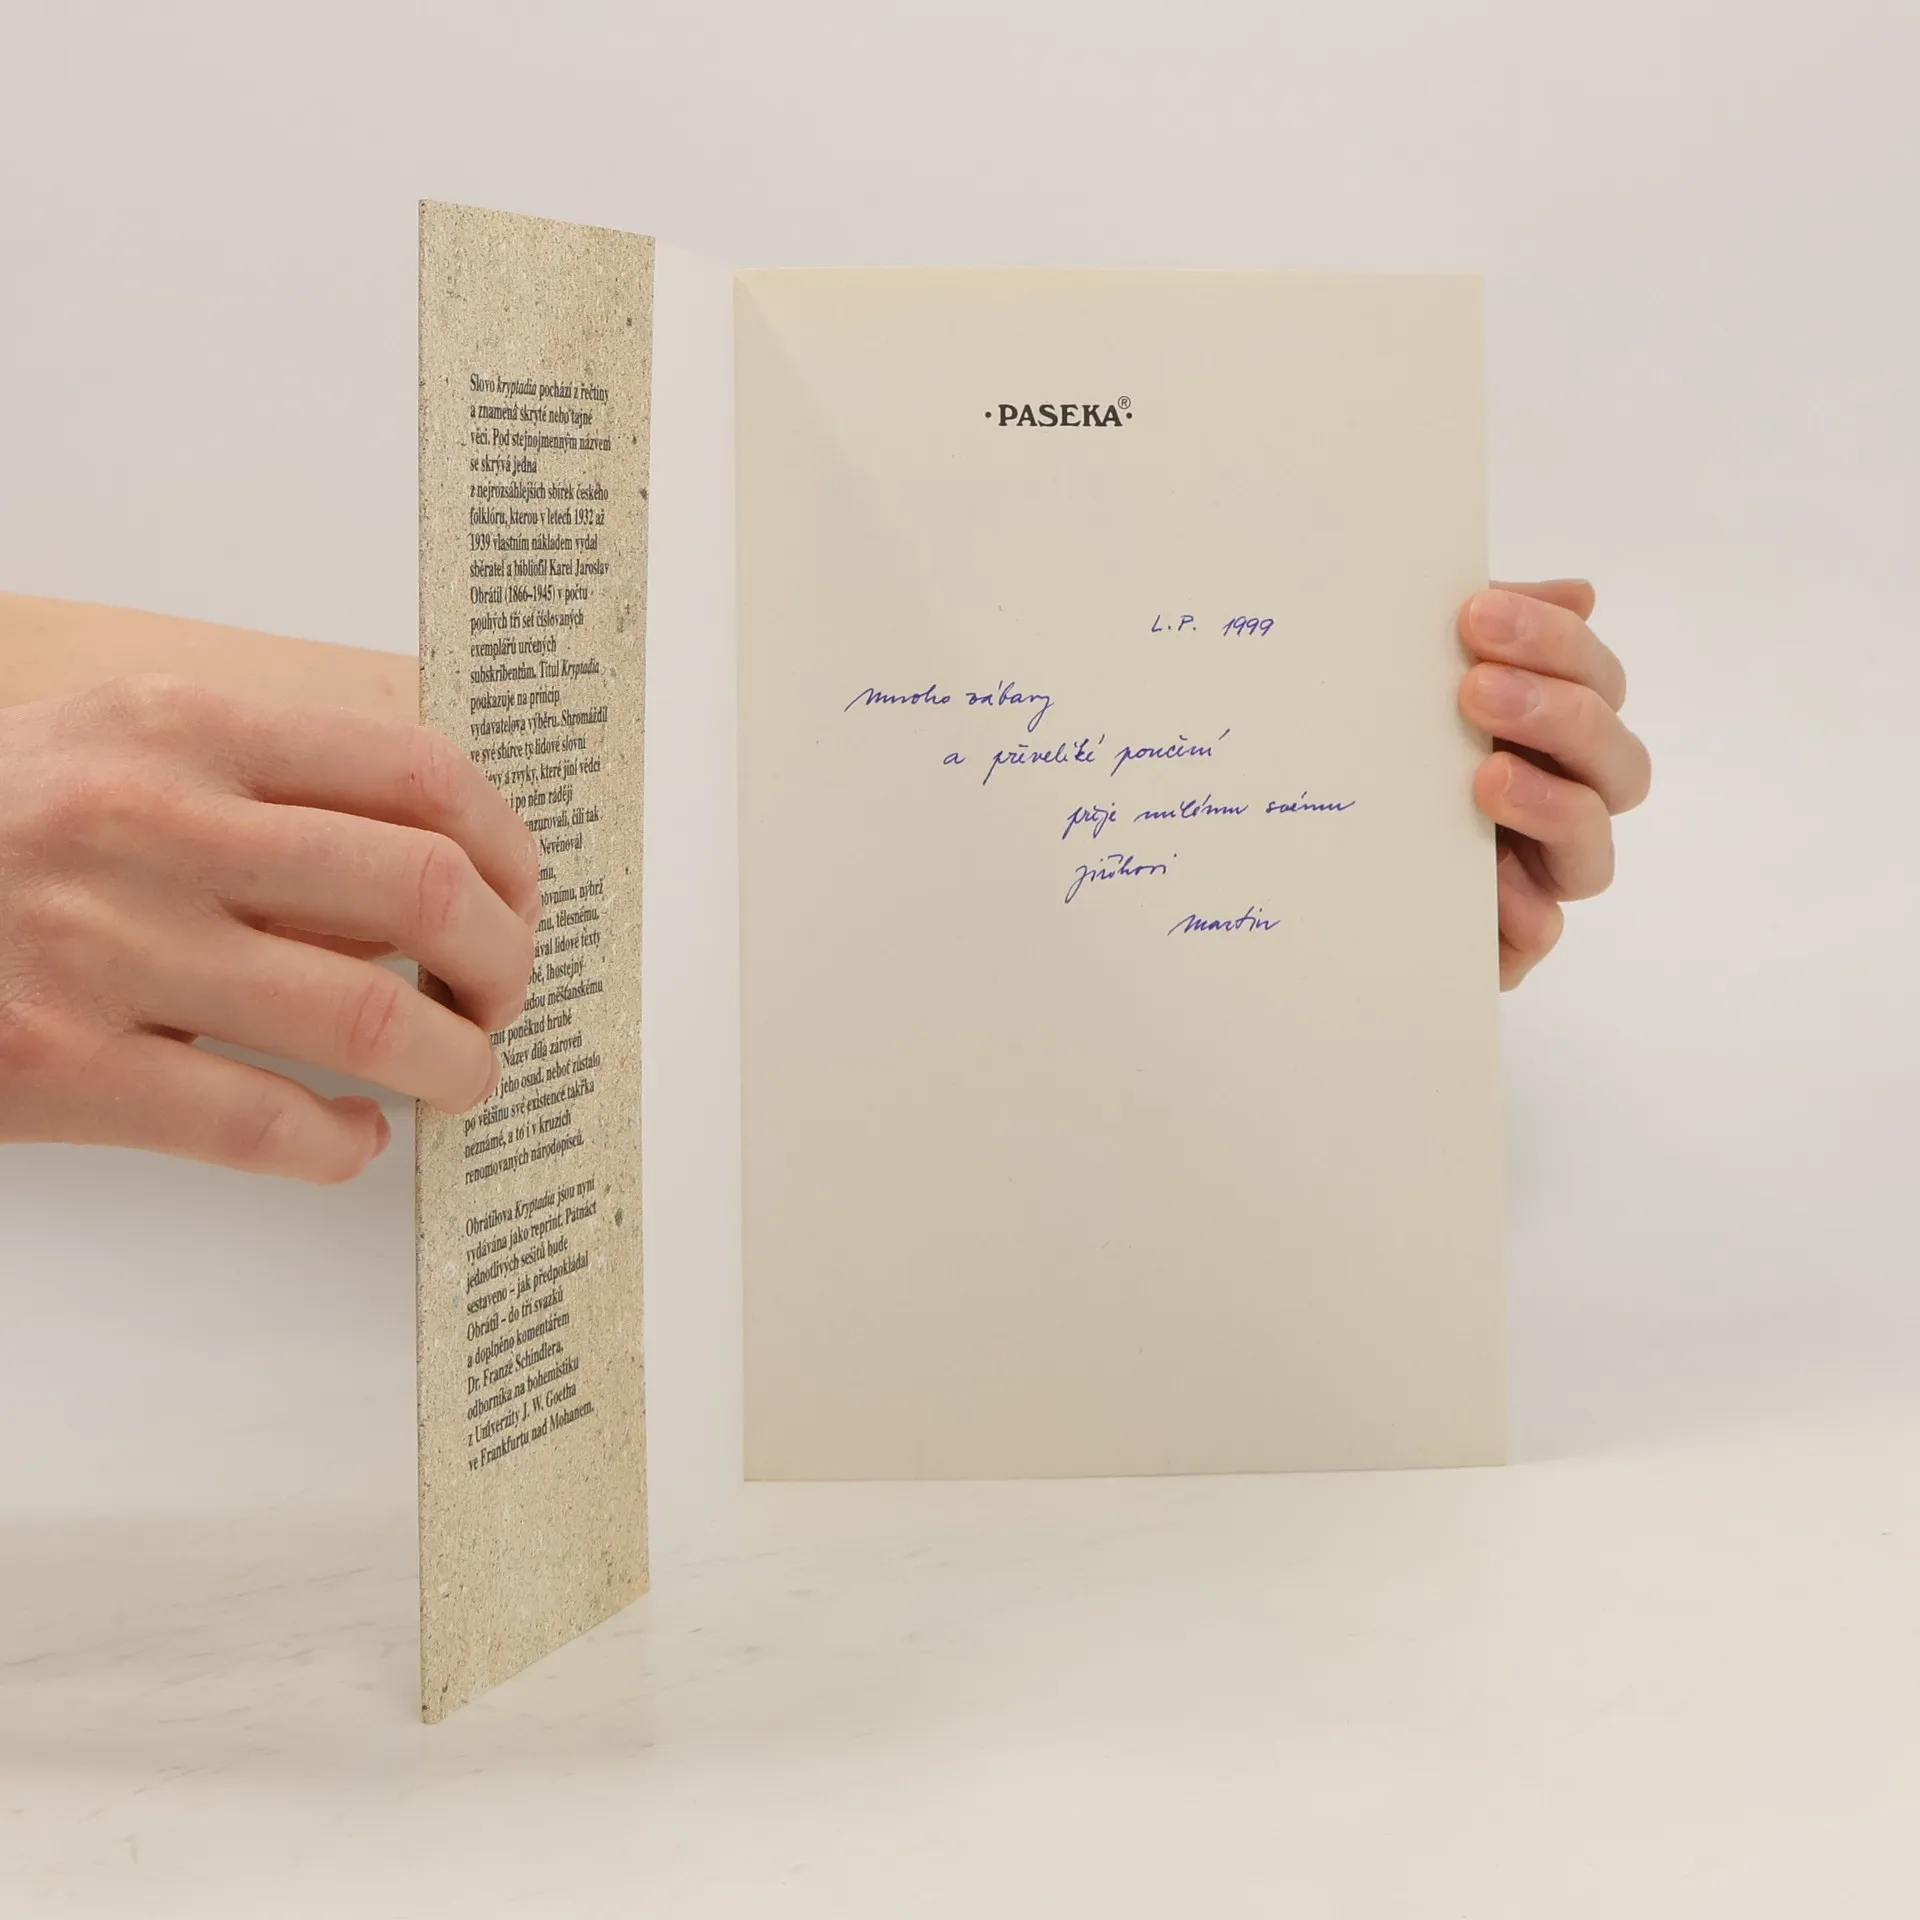 Slovo kryptadia pochází z řečtiny
a znamená skryté nebo tajné
věci. Pod stejnojmenným názvem
se skrývá jedna
z nejrozsáhlejších sbírek českého
folklóru, kterou v letech 1932 až
1939 vlastním nákladem vydal
sběratel a bibliofil Karel Jaroslav
Obrátil (1866–1945) v počtu
pouhých tří set číslovaných
exemplářů určených
subskribentům. Titul Kryptadia
poukazuje na princip
vydavatelova výběru. Shromáždil
ve své sbírce ty lidové slovní
a zvyky, které jiní vědci
i po něm raději
čili tak
Nevěnoval
nýbrž
tělesnému,
lidové texty
lhostejný
měšťanskému
poněkud hrubé
Název díla zároveň
i jeho osud, neboť zůstalo
po většinu své existence takřka
neznámé, a to i v kruzích
renomovaných národopisců.
Obrátilova Kryptadia jsou nyní
vydávána jako reprint. Patnáct
jednotlivých sešitů bude
sestaveno – jak předpokládal
Obrátil – do tří svazků
a doplněno komentářem
Dr. Franze Schindlera,
odborníka na bohemistiku
z Univerzity J. W. Goetha
ve Frankfurtu nad Mohanem.
·PASEKA®·
L.P. 1999
Mnoho zábavy
a převeliké poučení
přeje milému svému
Jiříkovi
Martin